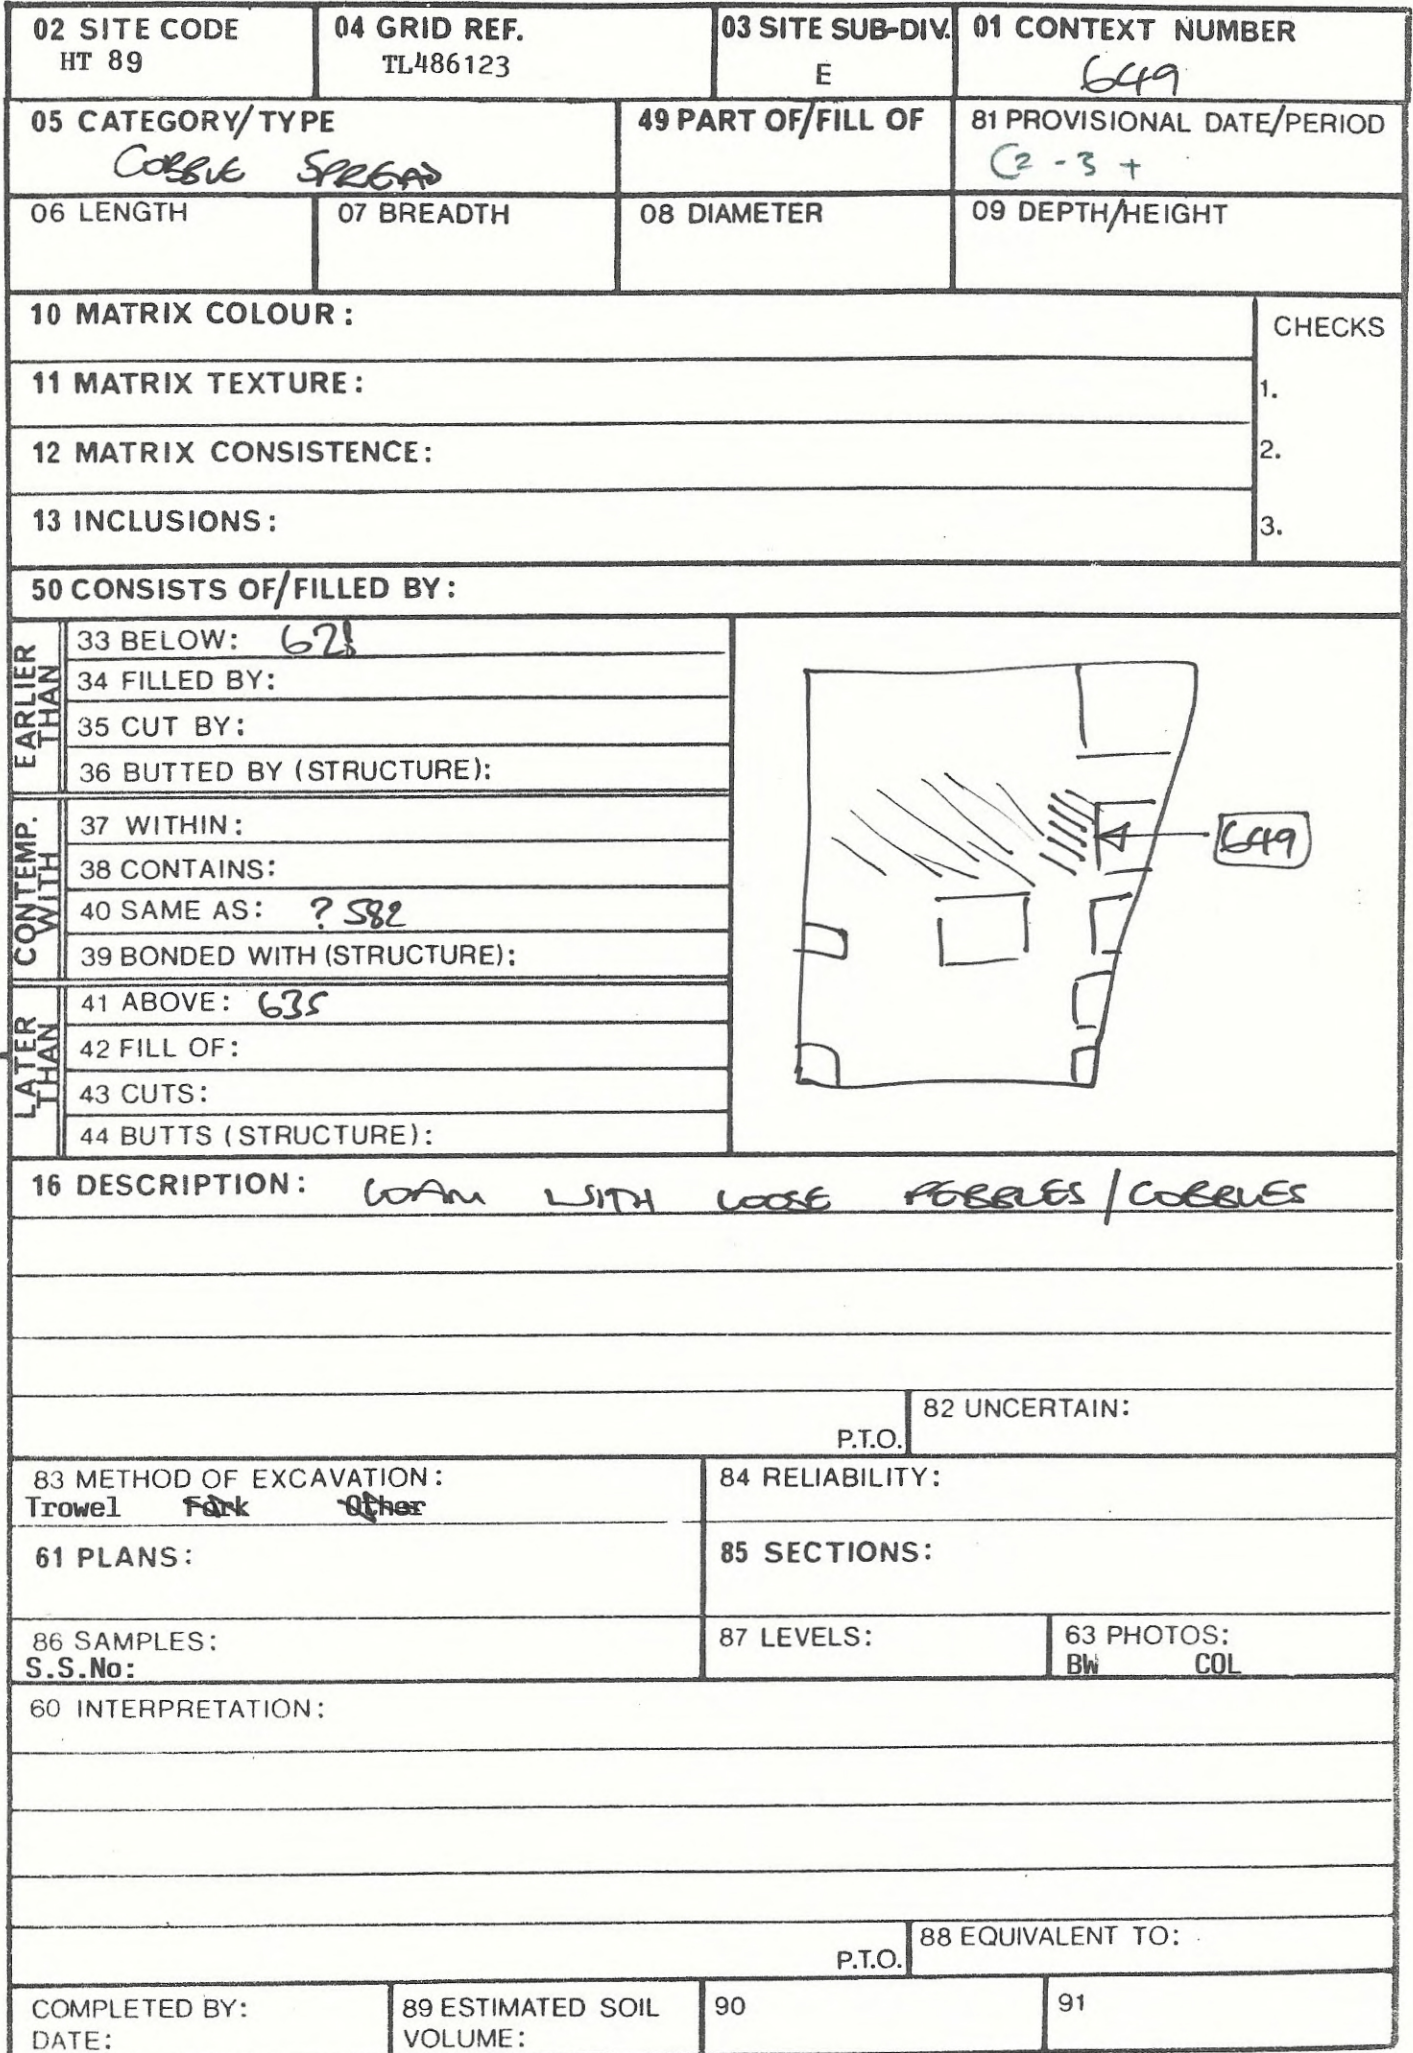 02 SITE CODE
HT 89
04 GRID REF.
TL486123
03 SITE SUB-DIV.
E
01 CONTEXT NUMBER
649
05 CATEGORY/TYPE
COBBLE SPREAD
49 PART OF/FILL OF
81 PROVISIONAL DATE/PERIOD
C2 - 3 +
06 LENGTH
07 BREADTH
08 DIAMETER
09 DEPTH/HEIGHT
10 MATRIX COLOUR:
CHECKS
11 MATRIX TEXTURE:
1.
12 MATRIX CONSISTENCE:
2.
13 INCLUSIONS:
3.
50 CONSISTS OF/FILLED BY:
EARLIER THAN
33 BELOW:
34 FILLED BY:
35 CUT BY:
36 BUTTED BY (STRUCTURE):
CONTEMP. WITH
37 WITHIN:
38 CONTAINS:
40 SAME AS: ? 582
39 BONDED WITH (STRUCTURE):
LATER THAN
41 ABOVE: 635
42 FILL OF:
43 CUTS:
44 BUTTS (STRUCTURE):
649
16 DESCRIPTION: LOAM WITH LOOSE PEBBLES/COBBLES
P.T.O.
82 UNCERTAIN:
83 METHOD OF EXCAVATION:
Trowel Fork Other
84 RELIABILITY:
61 PLANS:
85 SECTIONS:
86 SAMPLES:
S.S.No:
87 LEVELS:
63 PHOTOS:
BW COL
60 INTERPRETATION:
P.T.O.
88 EQUIVALENT TO:
COMPLETED BY:
DATE:
89 ESTIMATED SOIL
VOLUME:
90
91